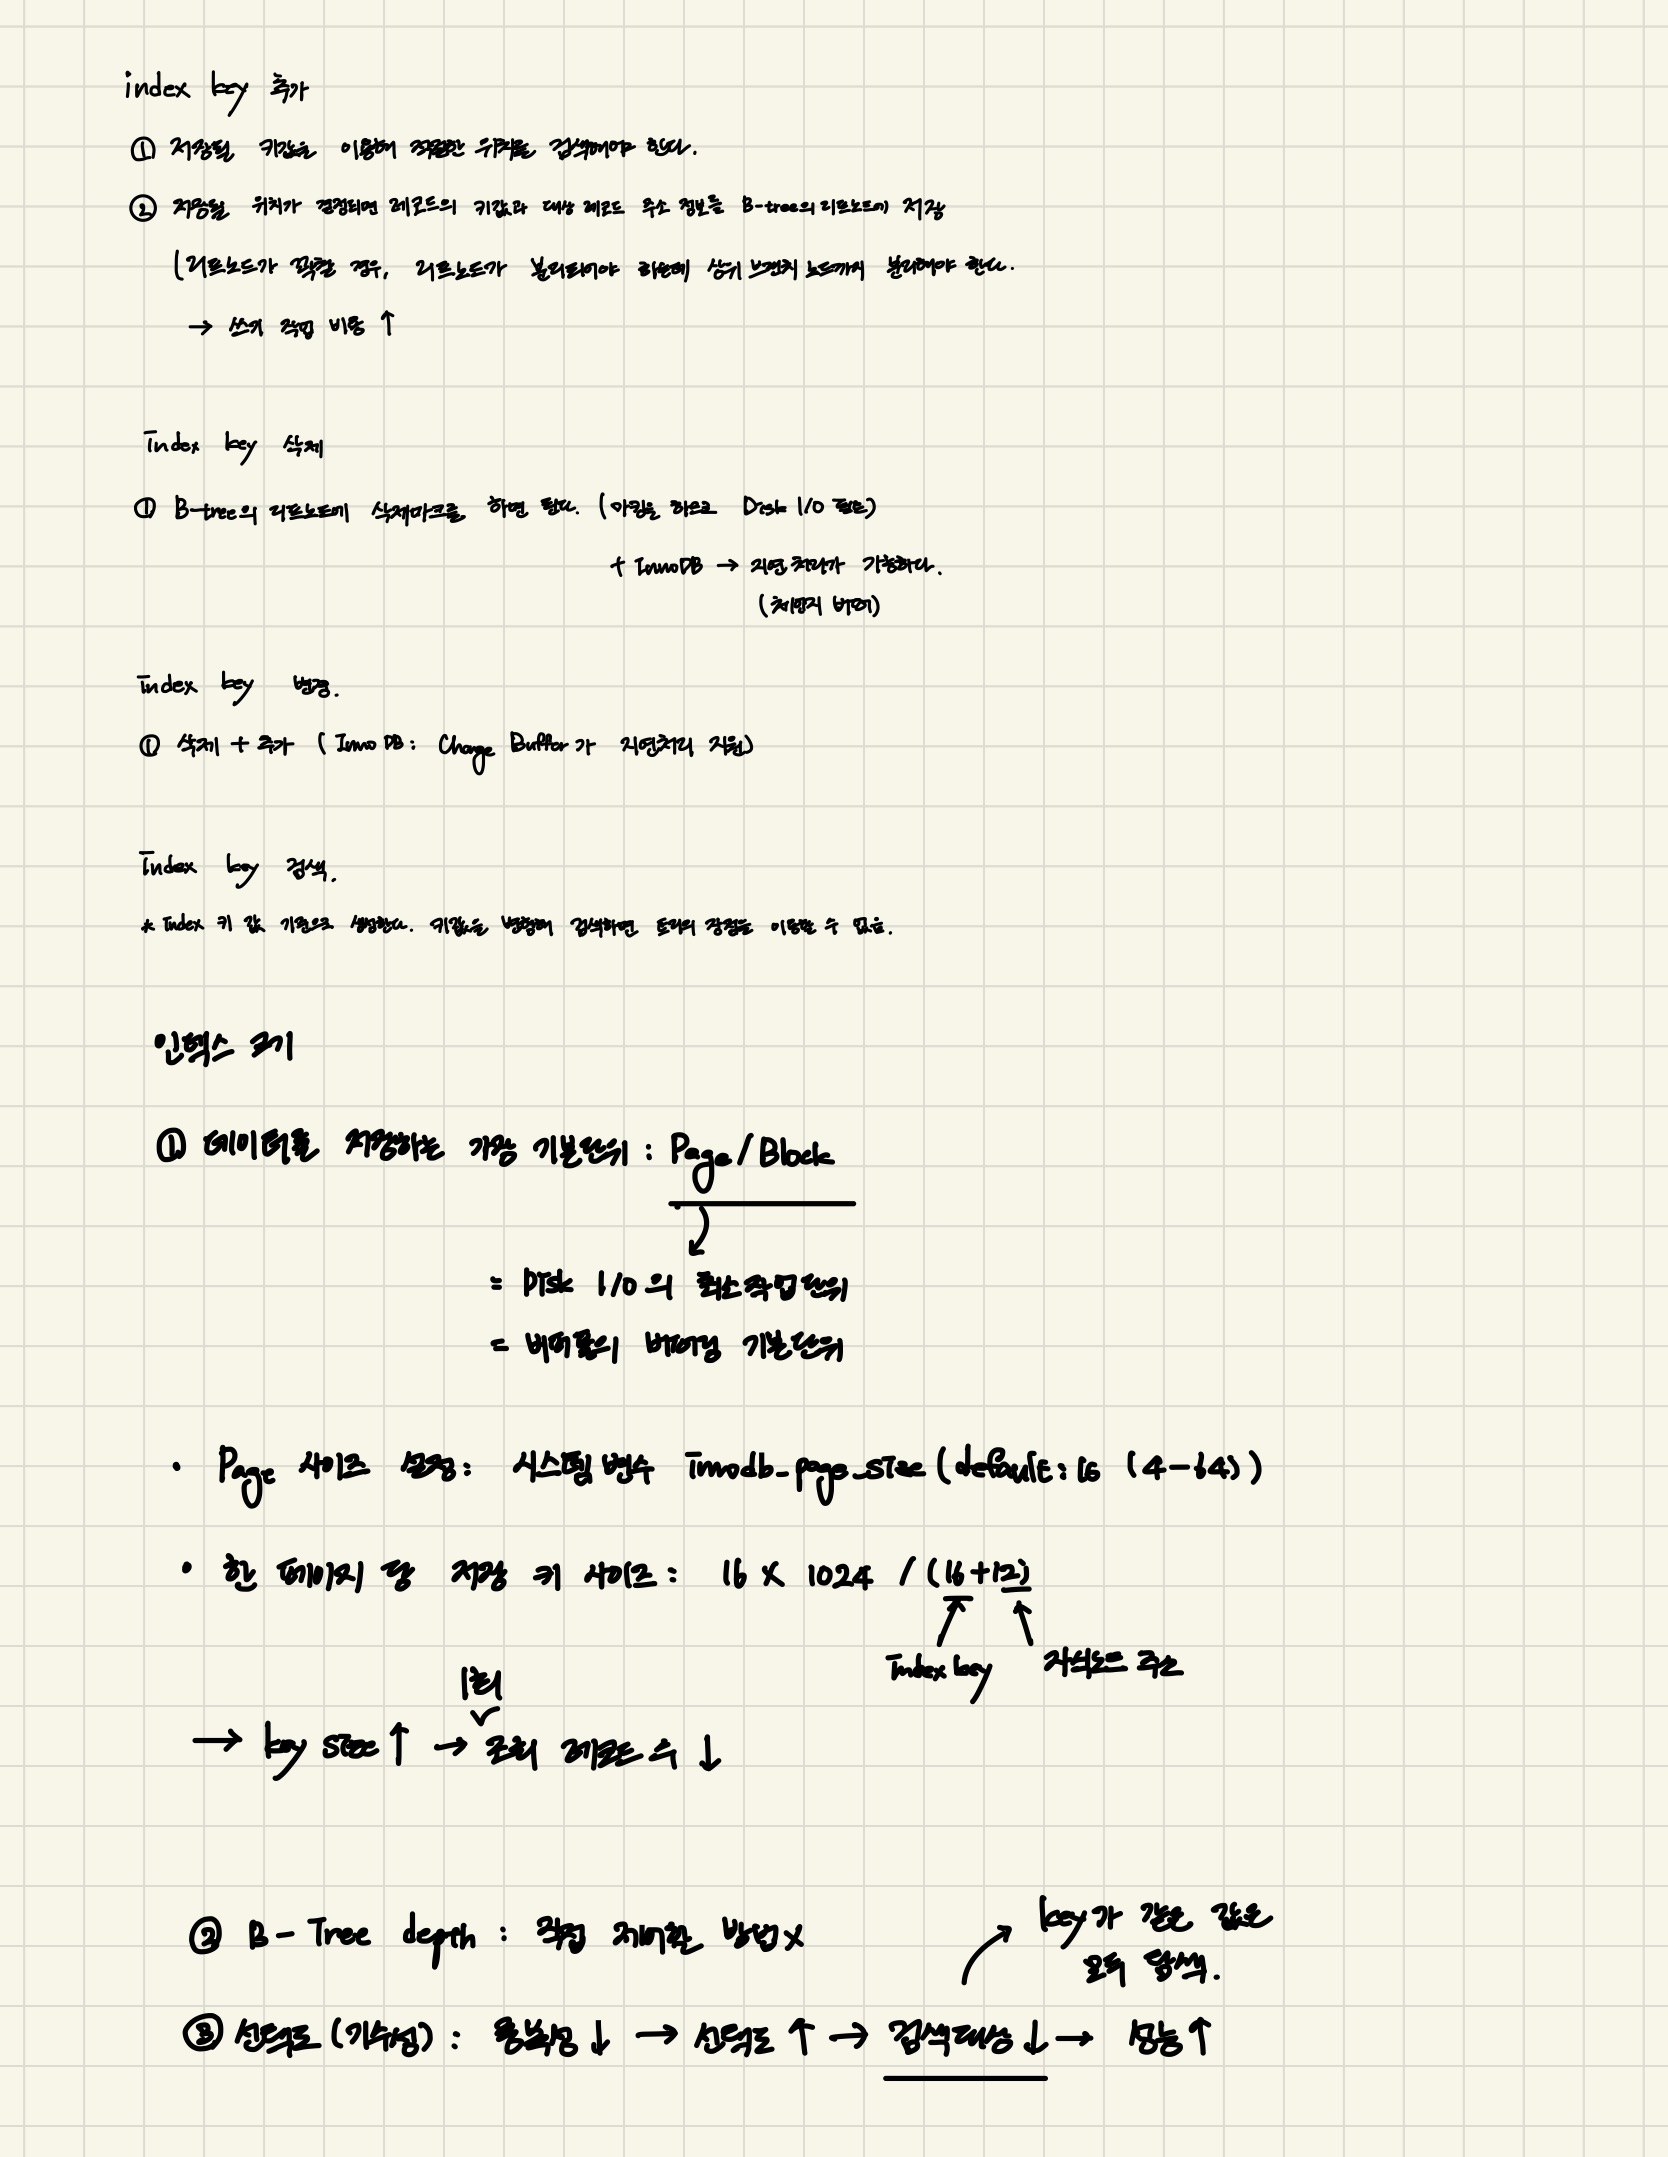 index key 추가
① 저장될 키값을 이용해 적절한 위치를 검색해야 한다.
② 저장될 위치가 결정되면 레코드의 키값과 대상 레코드 주소 정보를 B-tree의 리프노드에 저장
(리프노드가 꽉찰 경우, 리프노드가 분리되어야 하는데 상위 브랜치 노드까지 분리해야 한다.
→ 쓰기 작업 비용 ↑
Index key 삭제
① B-tree의 리프노드에 삭제마크를 하면 된다. (마킹을 하므로 Disk I/O 필요)
+ InnoDB → 지연처리가 가능하다.
(체인지 버퍼)
Index key 변경.
① 삭제 + 추가 (InnoDB: Change Buffer가 지연처리 지원)
Index key 검색.
* Index 키 값 기준으로 생성한다. 키값을 변형해 검색하면 트리의 장점을 이용할 수 없음.
인덱스 크기
① 데이터를 저장하는 가장 기본단위 : Page/Block
= Disk I/O의 최소작업단위
= 버퍼풀의 버퍼링 기본단위
• Page 사이즈 설정: 시스템 변수 innodb_page_size (default: 16 (4-64))
• 한 페이지 당 저장 키 사이즈 : 16 X 1024 / (16+12)
Index key 자식노드 주소
1회
→ key size ↑ → 조회 레코드 수 ↓
② B-Tree depth : 직접 제어할 방법 X
key가 같은 값은
모두 탐색.
③ 선택도 (기수성) : 중복성 ↓ → 선택도 ↑ → 검색대상 ↓ → 성능 ↑